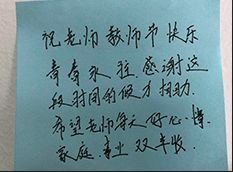 祝老师教师节快乐
青春永驻，感谢这
段时间的倾力相助.
希望老师每天好心情，
家庭事业双丰收.